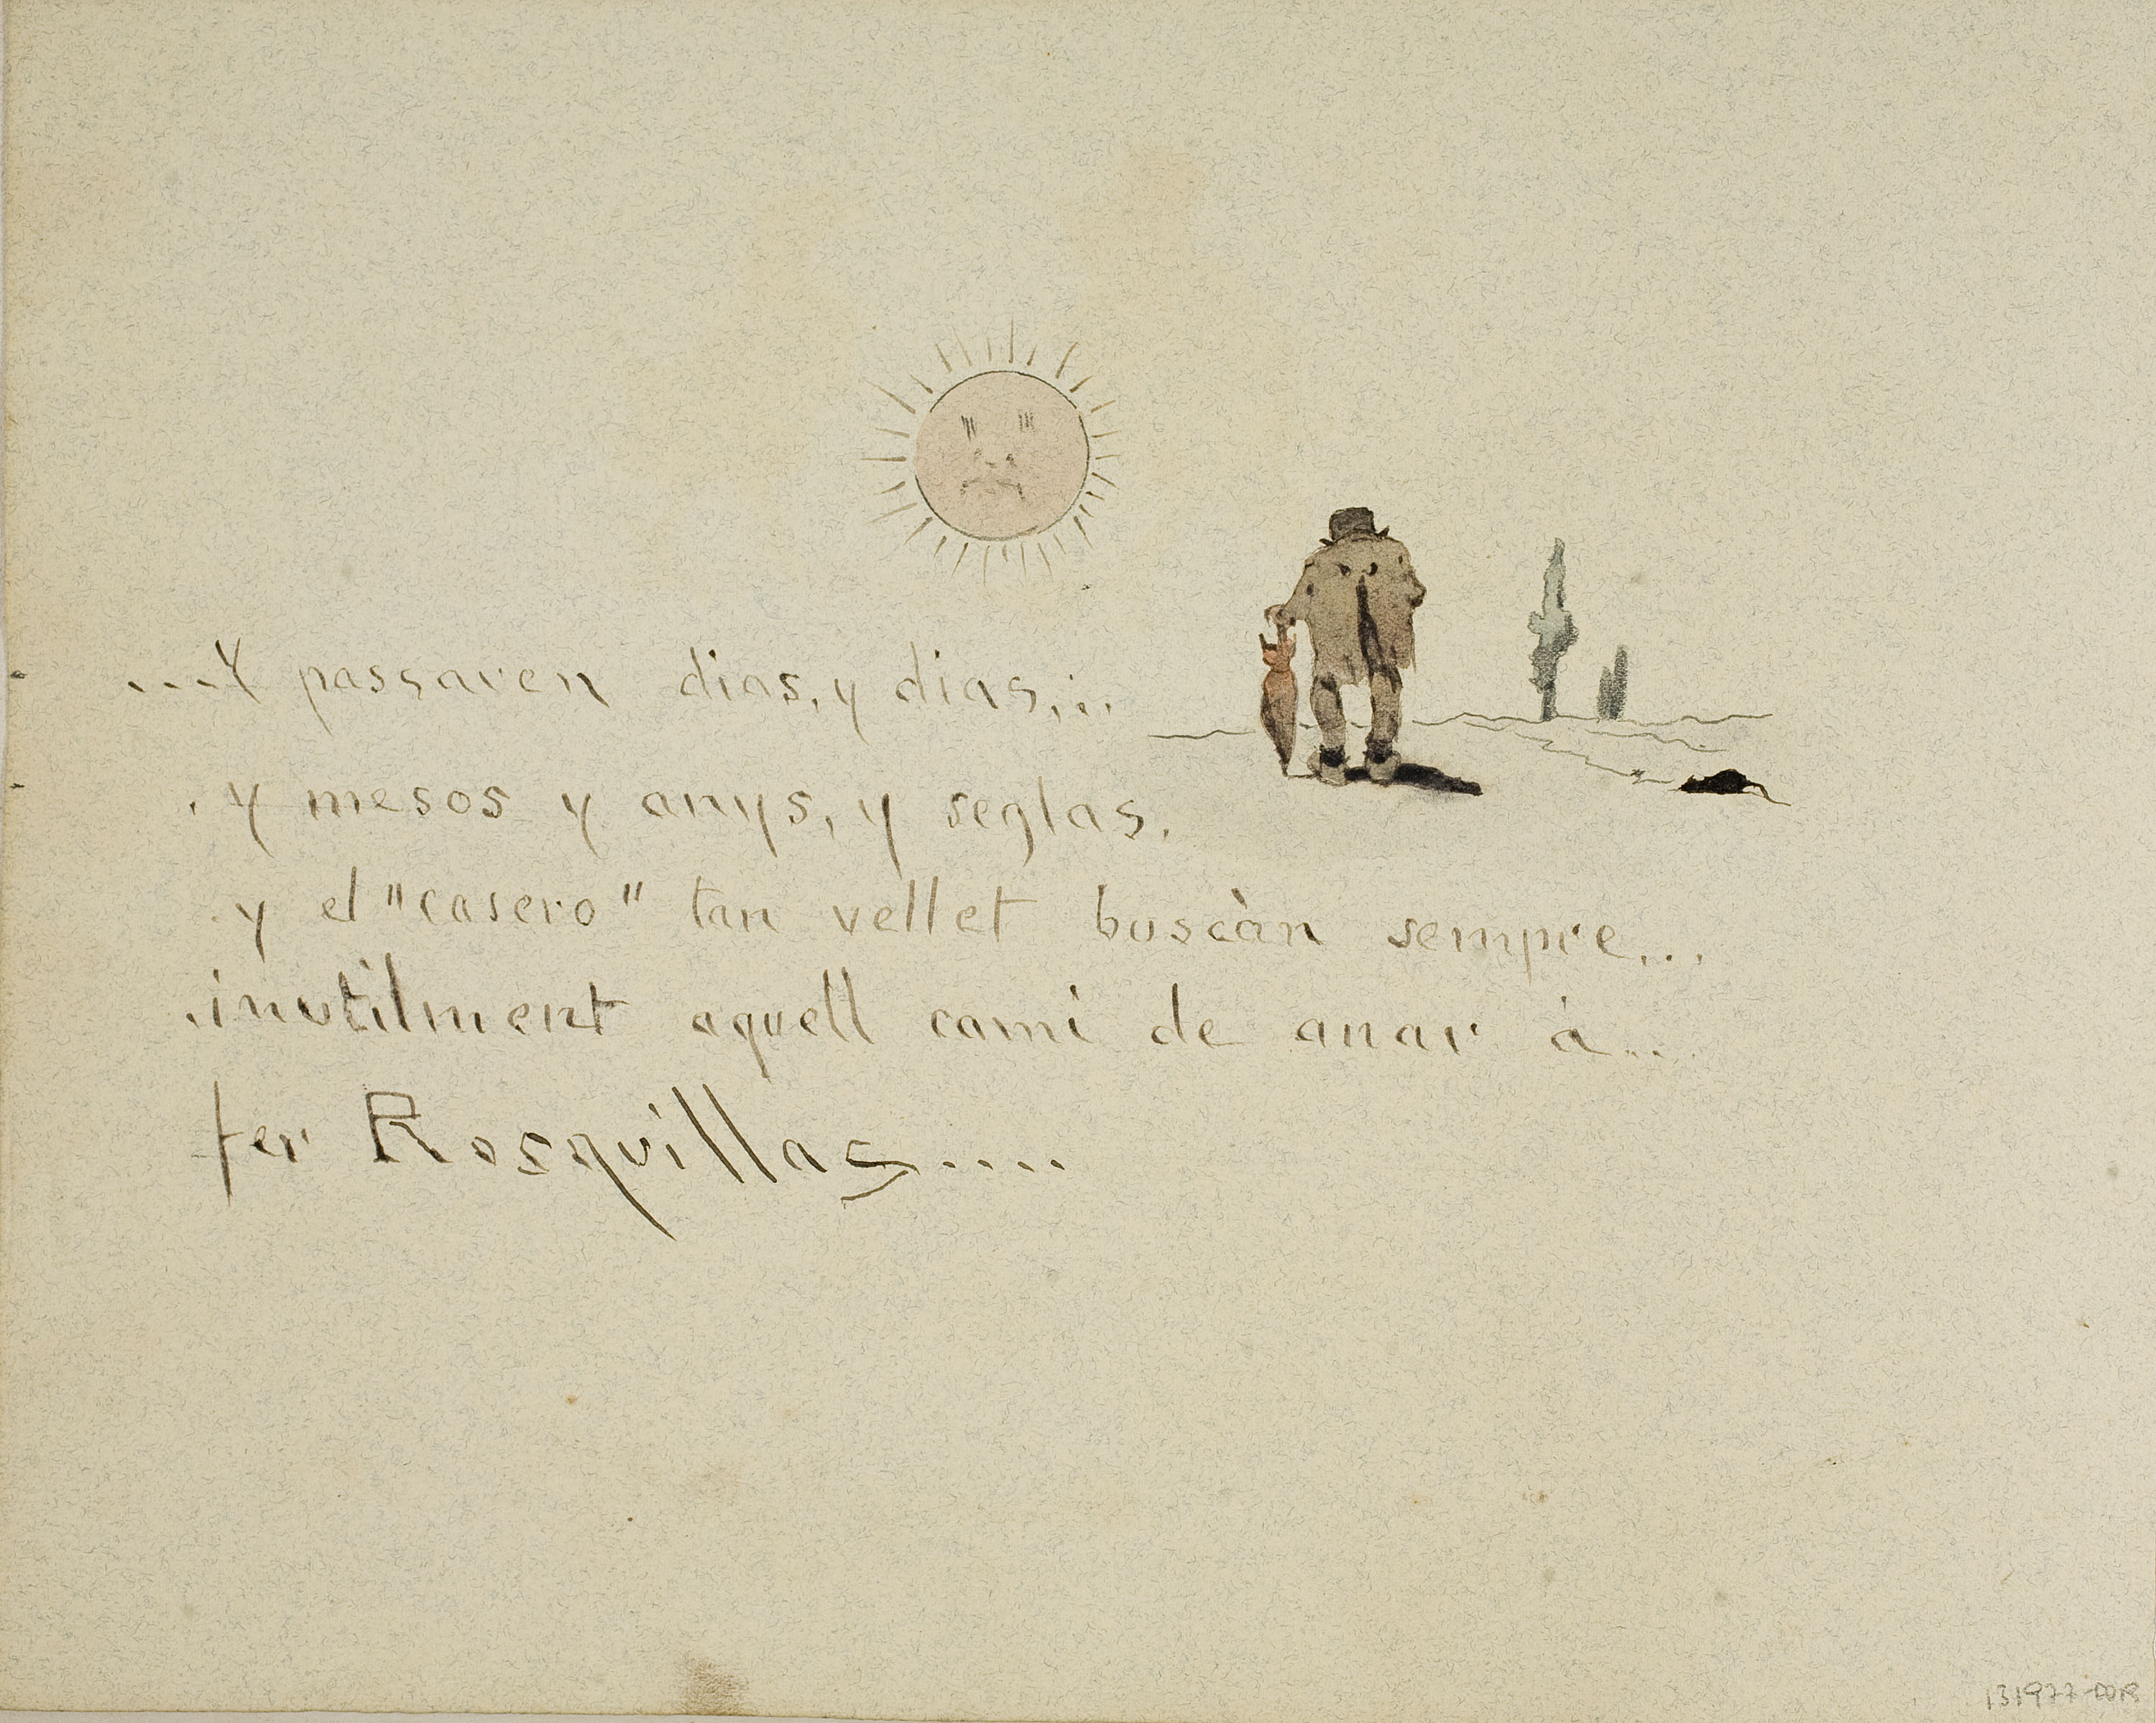 ....Y passaven dias, y dias,...
. y mesos y anys, y seglas.
. y el "casero" tan vellet buscàn sempre...
.inutilment aquell cami de anar à...
fer Rosquillas....
131977-D0R